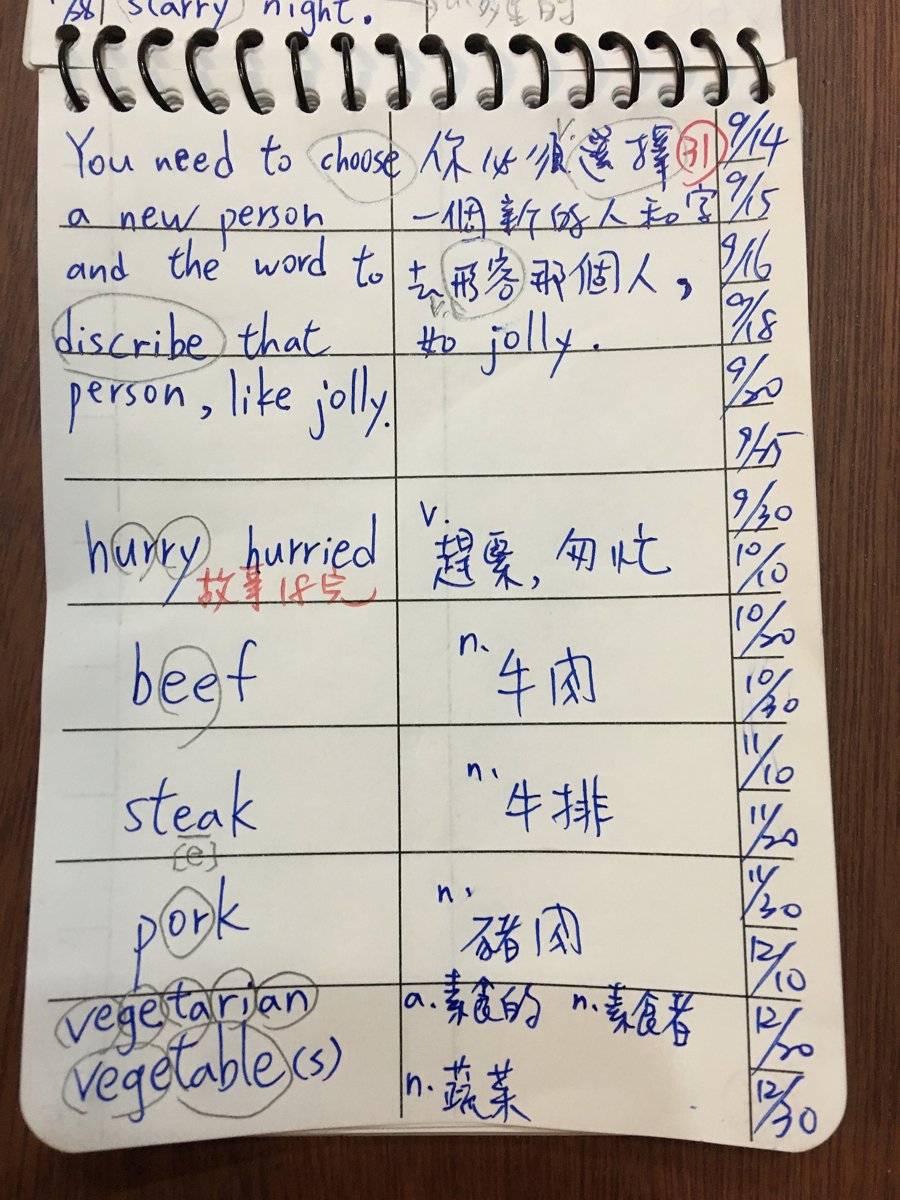 starry night.
You need to choose
a new person
and the word to
discribe that
person, like jolly.
v.
你必須選擇 31
一個新的人和字
去形容那個人,
v.
如 jolly.
hurry hurried
故事18完
v.
趕緊, 匆忙
beef
n. 牛肉
steak
[e]
n. 牛排
pork
n. 豬肉
vegetarian
a. 素食的 n. 素食者
vegetable(s)
n. 蔬菜
9/14
9/15
9/16
9/18
9/20
9/25
9/30
10/10
10/20
10/30
11/10
11/20
11/30
12/10
12/20
12/30